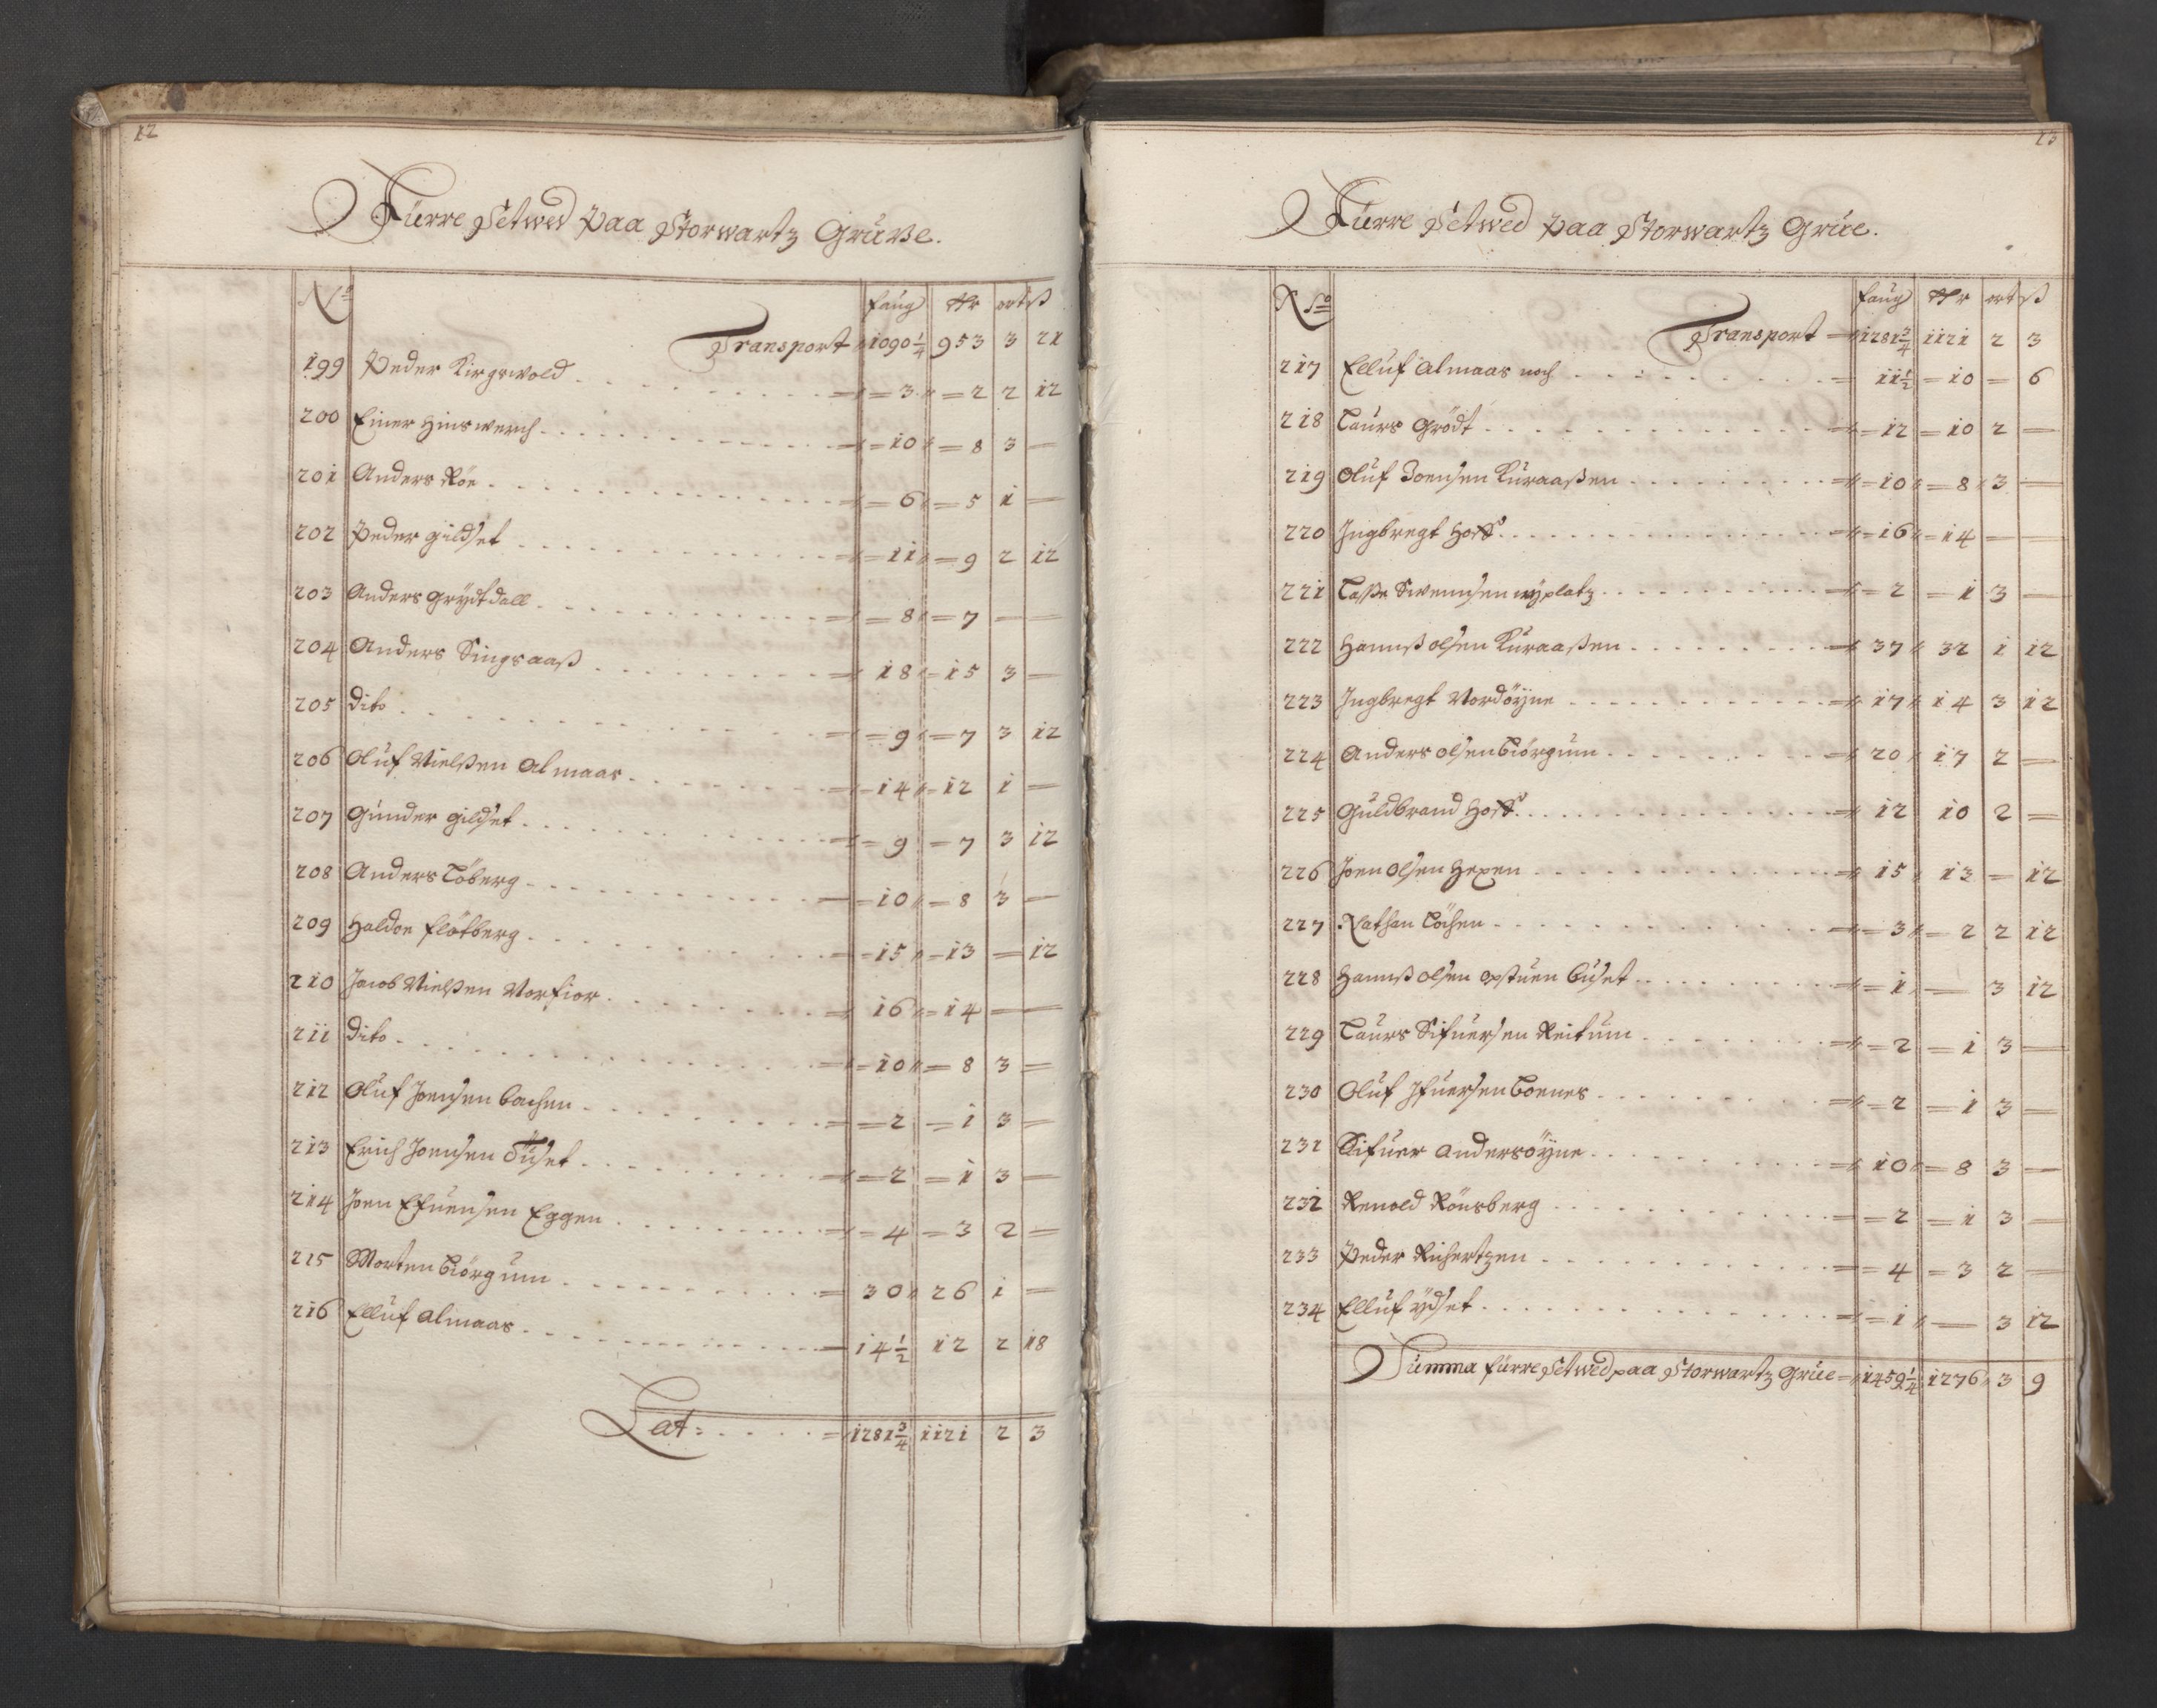 12
Fürre Setwed Paa Storwartz Grüve.
No faug Rr ort ß
Transport 1090 1/4 953 3 21
199 Peder Kirgswold = 3 = 2 2 12
200 Einer Hinswerch = 10 = 8 3 —
201 Anders Röe = 6 = 5 1 —
202 Peder gildset = 11 = 9 2 12
203 Anders Grydtdall = 8 = 7 — —
204 Anders Singsaaß 18 = 15 3 —
205 Dito = 9 = 7 3 12
206 Oluf Nielßen Almaas = 14 = 12 1 —
207 Gunder gildset = 9 = 7 3 12
208 Anders Töberg = 10 = 8 3 —
209 Haldor flötberg = 15 = 13 — 12
210 Jacob Nielßen Morfior 16 = 14 — —
211 Dito = 10 = 8 3 =
212 Oluf Joensen Bachen = 2 = 1 3 —
213 Erich Joensen = 2 = 1 3 —
214 Joen Efuensen Eggen = 4 = 3 2 =
215 Morten Biörgum 30 26 1 —
216 Elluf Almaas 14 1/2 12 2 18
Lat: 1281 3/4 1121 2 3
13
Fürre Setwed Paa Storwartz Grüe.
No faug Rr ort ß
Transport 1281 3/4 1121 2 3
217 Elluf Almaas noch 11 1/2 = 10 = 6
218 Laurs Grödt = 12 = 10 2 —
219 Oluf Joensen Kuraaßen = 10 = 8 3 —
220 Ingbregt Hoff = 16 = 14 — —
221 Laße Swensen nyplatz = 2 = 1 3 —
222 Hannß Olsen Kuraaßen 37 32 1 12
223 Ingbregt Nordöyne 17 14 3 12
224 Anders Olsen Biörgum 20 17 2 —
225 Guldbrand Hoff 12 10 2 =
226 Joen Olsen Hexen 15 13 — 12
227 Nathan = 3 = 2 2 12
228 Hannß Olsen Opstuen Buset = 1 — 3 12
229 Laurs Sifuersen Reitum = 2 = 1 3 —
230 Oluf Ifuersen = 2 = 1 3 —
231 Sifuer Andersöyne 10 = 8 3 —
232 Renold Rönsberg = 2 = 1 3 —
233 Peder Richertzen = 4 = 3 2 —
234 Elluf ydset = 1 — 3 12
Summa fürre Setwed paa Storwartz Grüe = 1459 1/4 1276 3 9